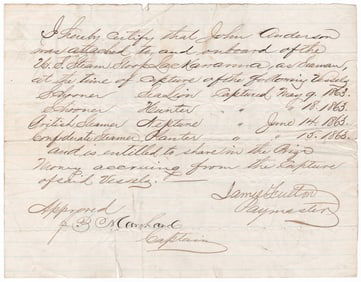 I hereby certify that John Anderson
was attached to, and onboard of the
U.S. Steam Sloop Lackawanna as Seaman,
at the time of capture of the following Vessels
Schooner Captured May 9. 1863.
Schooner Hunter " " 18. 1863.
British Steamer Neptune " June 14. 1863
Confederate Steamer Planter " " 15. 1863
and is entitled to share in the Prize
Money accruing from the Capture
of said Vessels.
James Fulton
Paymaster
Approved
J B Marchand
Captain